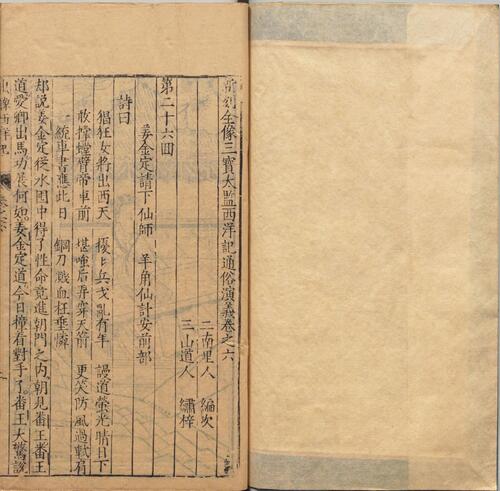 新刻全像三寶太監西洋記通俗演義卷之六
二南里人 編次
三山道人 繡梓
第二十六回
姜金定請下仙師 羊角仙計安前部
詩曰
猖狂女將出西天 擾〻兵戈亂有年 謾道螢光晴日下
敢撐螳臂帶車前 堪嗤后羿穿天箭 更笑防風過軾肩
一統車書應此日 鋼刀濺血枉垂憐
却說姜金定從水囤中得了性命竟進朝門之內朝見番王番王
道愛卿出馬功展何如姜金定道今日撞看對手了番王大驚說
出像西洋記 卷之六 一